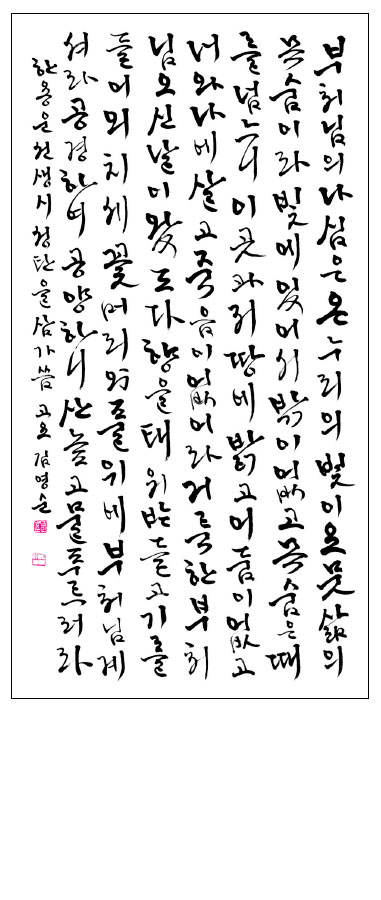 부처님의나심은온누리의빛이오뭇삶의
목숨이라빛에있어서밖이없고목숨은때
를넘느니이곳과저땅에밝고어둠이없고
너와나에살고죽음이없어라거룩한부처
님오신날이왔도다향을태워받들고기를
들어외치세꽃머리와풀위에부처님계
셔라공경하여공양하니산높고물푸르러라
한용운선생시성탄을삼가씀 고요 김영순